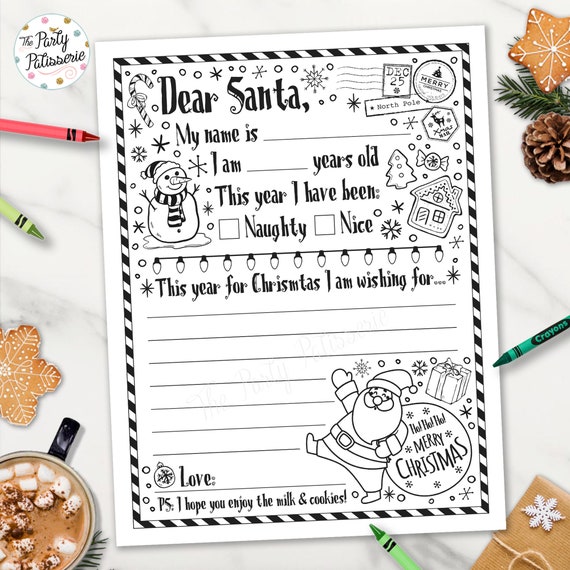 The Party
Patisserie
Dear Santa,
DEC
25
MERRY
CHRISTMAS
North Pole
My name is
I am years old
This year I have been:
Naughty Nice
This year for Chrismtas I am wishing for...
The Party Patisserie
Ho! Ho! Ho!
MERRY
CHRISTMAS
Love:
PS: I hope you enjoy the milk & cookies!
Crayons